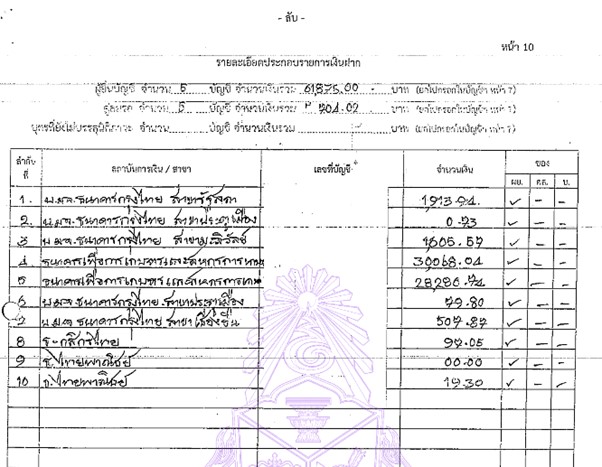 - ลับ -
หน้า 10
รายละเอียดประกอบรายการเงินฝาก
ผู้ยื่นบัญชี จำนวน 5 บัญชี จำนวนเงินรวม 61875.00 บาท (ยกไปกรอกในบัญชีฯ หน้า 7)
คู่สมรส จำนวน 5 บัญชี จำนวนเงินรวม 704.02 บาท (ยกไปกรอกในบัญชีฯ หน้า 7)
บุตรที่ยังไม่บรรลุนิติภาวะ จำนวน บัญชี จำนวนเงินรวม บาท (ยกไปกรอกในบัญชีฯ หน้า 7)
ลำดับที่ สถาบันการเงิน / สาขา เลขที่บัญชี จำนวนเงิน ของ
ผย. คส. บ.
1. บมจ.ธนาคารกรุงไทย สาขารัฐสภา 1913.94. ✓ - -
2. บมจ.ธนาคารกรุงไทย สาขาประตูเมือง 0.93 ✓ - -
3 บมจ.ธนาคารกรุงไทย สาขามะลิวัลย์ 1605.57 ✓ - -
4 ธนาคารเพื่อการเกษตรและสหกรณ์การเกษ 30068.04 ✓ - -
5 ธนาคารเพื่อการเกษตรและสหกรณ์การเกษ 28286.74 ✓ - -
6 บมจ.ธนาคารกรุงไทย สาขาประตูเมือง 79.80 ✓ - -
7 บมจ ธนาคารกรุงไทย สาขา 507.87 ✓ - -
8 ธ.กสิกรไทย 97.05 ✓ - -
9 ธ.ไทยพาณิชย์ 00.00 ✓ - -
10 ธ.ไทยพาณิชย์ 19.30 ✓ - -